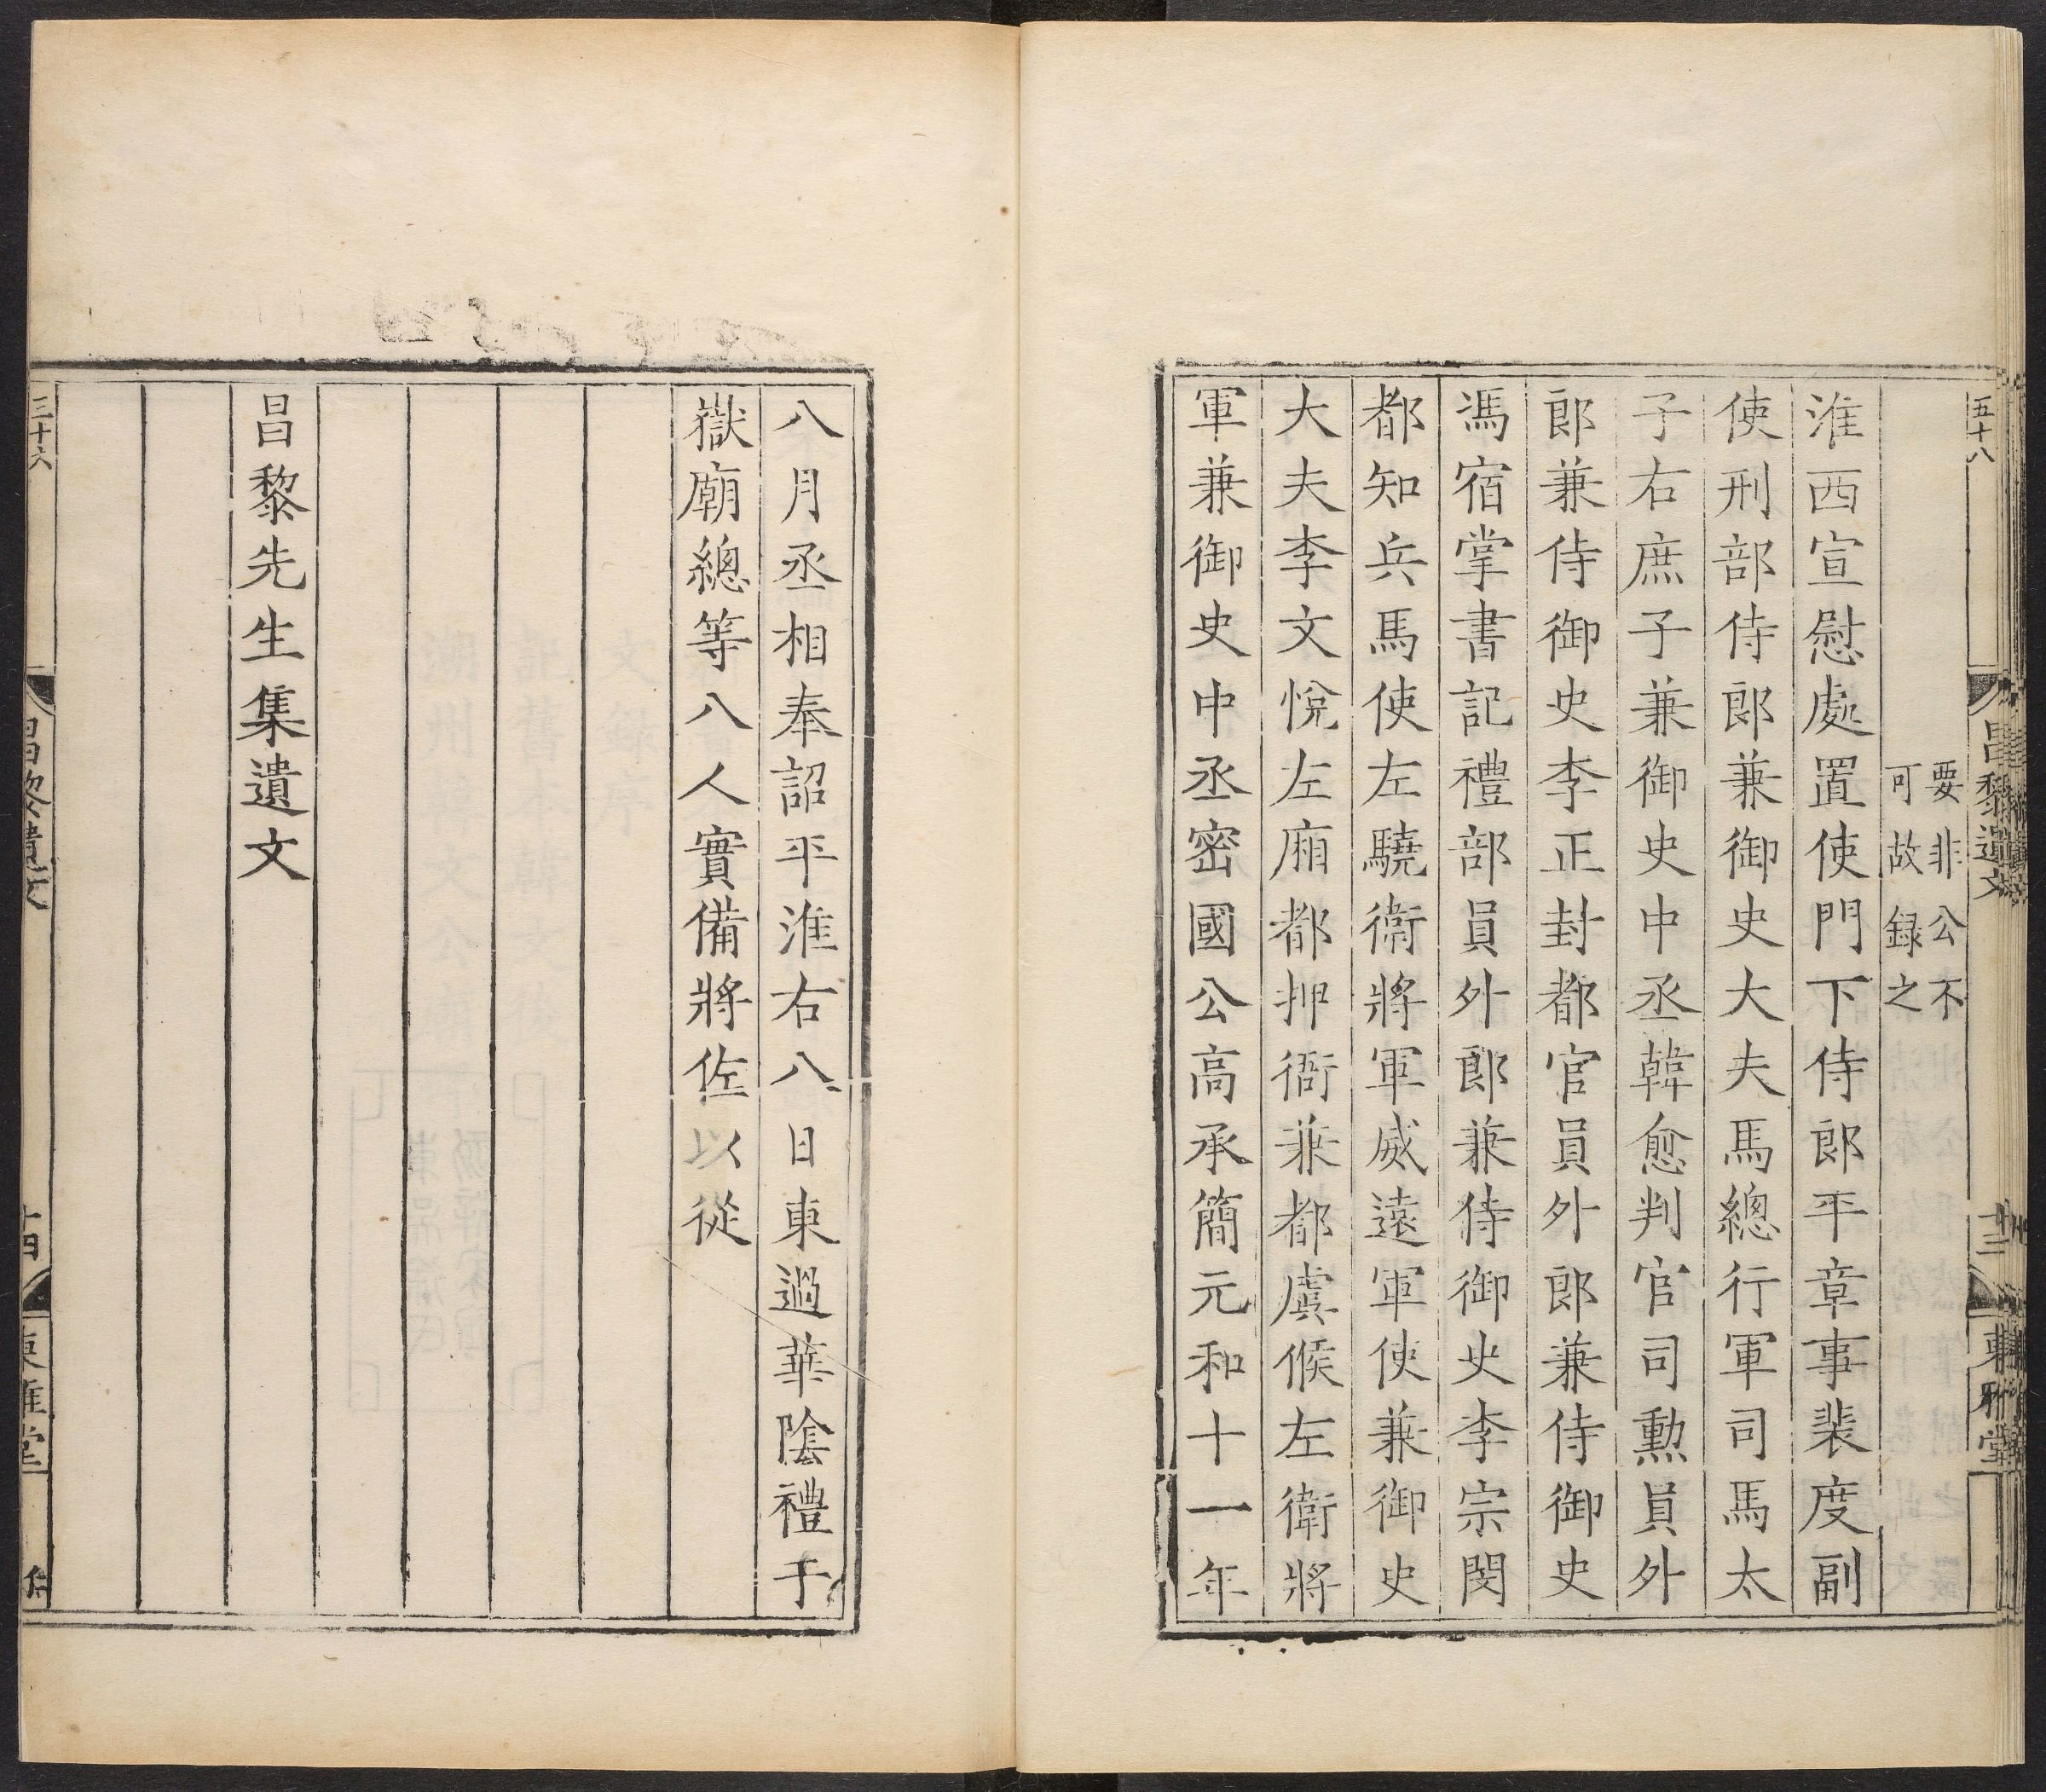 五十八
昌黎遺文
十三
東雅堂
要非公不
可故録之
淮西宣慰處置使門下侍郎平章事裴度副
使刑部侍郎兼御史大夫馬總行軍司馬太
子右庶子兼御史中丞韓愈判官司勲員外
郎兼侍御史李正封都官員外郎兼侍御史
馮宿掌書記禮部員外郎兼侍御史李宗閔
都知兵馬使左驍衞將軍威遠軍使兼御史
大夫李文悅左廂都押衙兼都虞候左衛將
軍兼御史中丞密國公高承簡元和十一年
八月丞相奉詔平淮右八日東過華陰禮于
嶽廟總等八人實備將佐以從
昌黎先生集遺文
三十六
昌黎遺文
十四
東雅堂